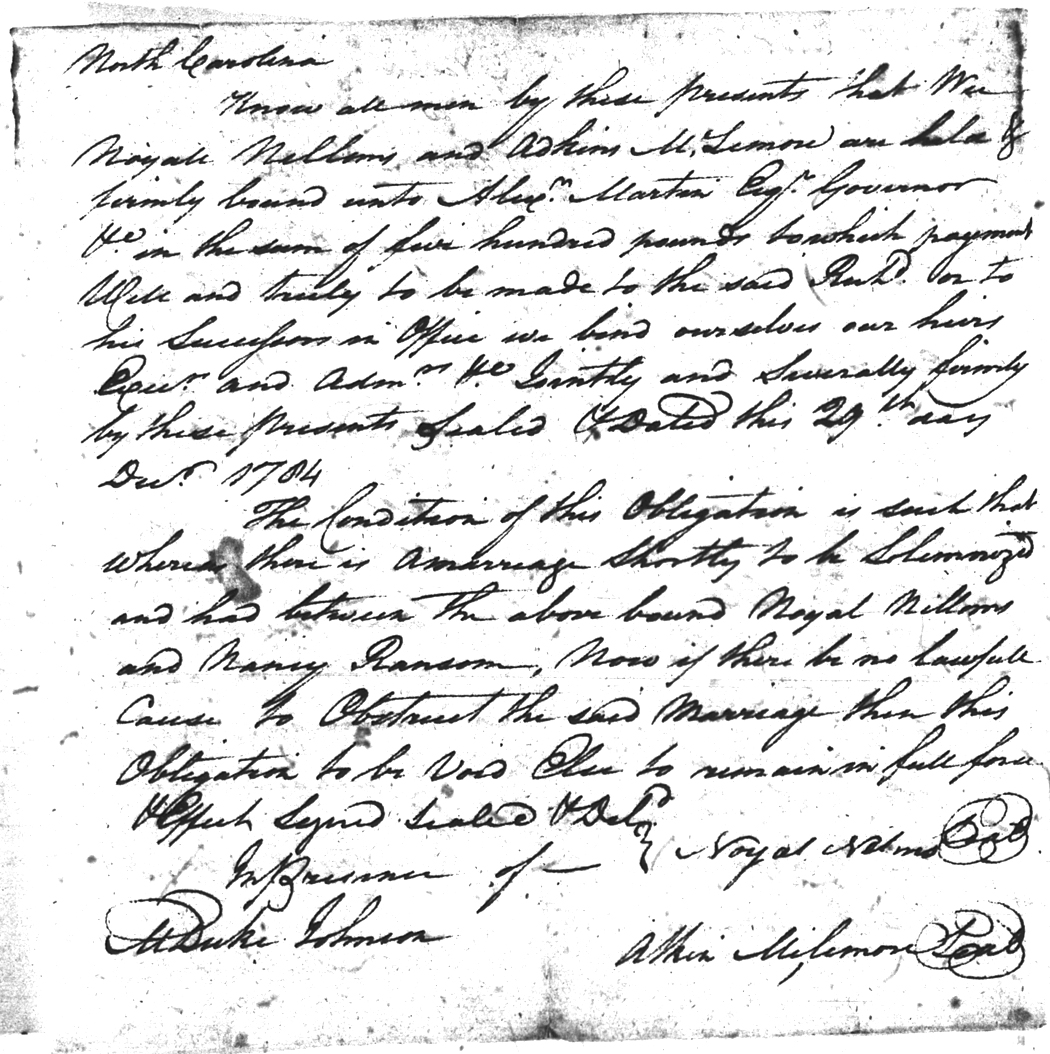 North Carolina
Know all men by these presents that Wee
Noyall Nellums and Adkins McLemore are held &
firmly bound unto Alexr. Martin Esqr. Governor
&c. in the sum of five hundred pounds to which payment
Well and truly to be made to the said Richd. or to
his Successors in Office we bind ourselves our heirs
Execrs. and Admrs. &c. Jointly and Severally firmly
by these presents Sealed & Dated this 29th. day
Decr. 1784
The Condition of this Obligation is such that
whereas there is a marriage Shortly to be Solemnized
and had between the above bound Noyal Nilloms
and Nancy Ransom, Now if there be no lawfull
Cause to Obstruct the said Marriage then this
Obligation to be Void Else to remain in full force
& Effect Signed Sealed & Deld
In Presence of } Noyal Nelms Seal
M Duke Johnson
Atkin Mclemore Seal